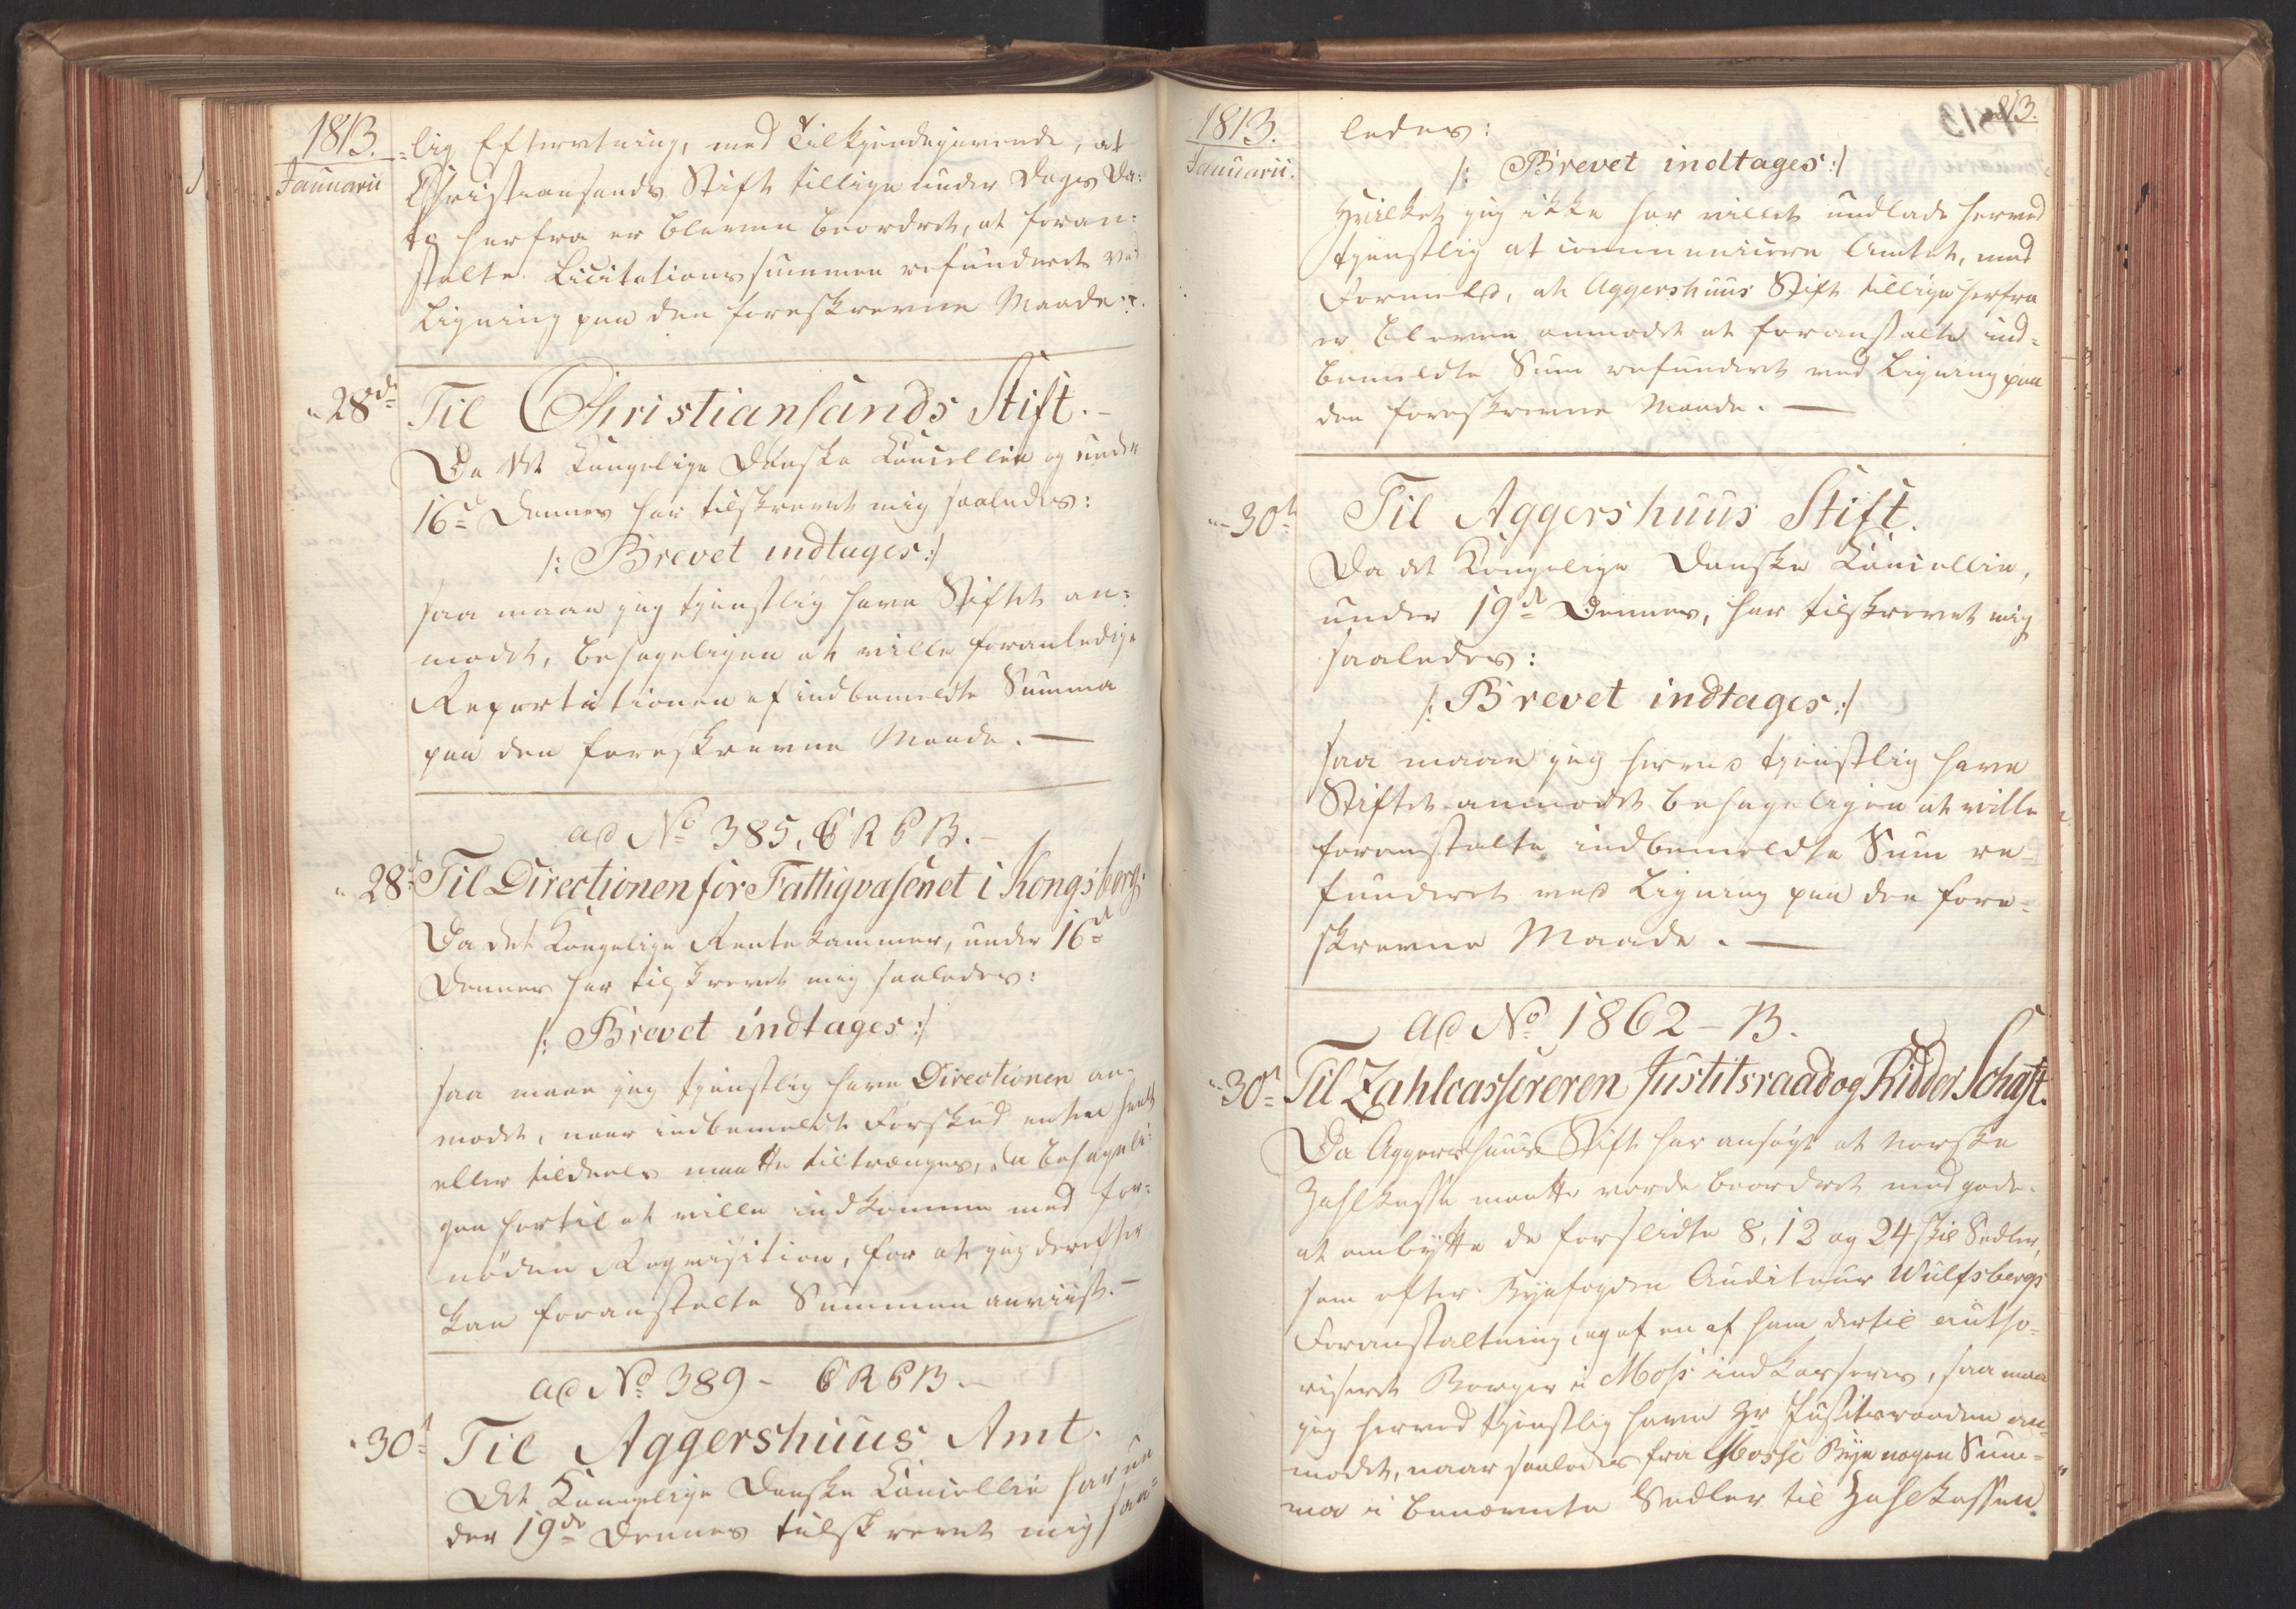 1813.
Januarii
-lig Efterretning, med Tilkjendegivende, at
Christiansands Stift tillige under Dags Da-
to herfra er bleven beordret, at foran-
stalte Licitationssummen refunderet ved
Ligning paa den foreskrevne Maade.
28de
Til Christiansands Stift.-
Da det Kongelige Danske Cancellie og under
16d Dennes har tilskrevet mig saaledes:
/: Brevet indtages :/
saa maae jeg tjenstlig have Stiftet an-
modet, behageligen at ville foranledige
Repartitionen af indbemeldte Summa
paa den foreskrevne Maade. —
ad No 385, CRPB.-
28d Til Directionen for Fattigvæsenet i Kongsberg.
Da det Kongelige Rentekammer, under 16d
Dennes har tilskrevet mig saaledes:
/: Brevet indtages :/
saa maae jeg tjenstlig have Directionen an-
modet, naar indbemeldte Forskud enten heelt
eller tildeels maatte tiltrænges, da behageli-
gen hertil at ville indkomme med for-
nöden Reqvisition, for at jeg derefter
kan foranstalte Summen anviist.—
ad No 389- CRPB.-
30d
Til Aggershuus Amt.
Det Kongelige Danske Cancellie har un
der 19de Dennes tilskrevet mig saa-
1813.
Januarii.
813.
ledes:
/: Brevet indtages :/
Hvilket jeg ikke har villet undlade herved
tjenstlig at communicere Amtet, med
Formeld, at Aggershuus Stift tillige herfra
er bleven anmodet at foranstalte ind-
bemeldte Sum refunderet ved Ligning paa
den foreskrevne Maade. —
30d
Til Aggershuus Stift.
Da det Kongelige Danske Cancellie,
under 19d Dennes, har tilskrevet mig
saaledes:
/: Brevet indtages :/
saa maae jeg herved tjenstlig have
Stiftet anmodet behageligen at ville
foranstalte indbemeldte Sum re-
funderet ved Ligning paa den fore-
skrevne Maade. —
ad No 1862-B.
30d Til Zahlcassereren Justitsraad og Ridder Schaft.
Da Aggershuus Stift har ansögt at Norske
Zahlkasse maatte vorde beordret med gode
at ombytte de forslidte 8, 12 og 24 skil Sedler,
som efter Byefogden Auditeur Wulfsbergs
Foranstaltning, og af en af ham dertil autho-
riseret Borger i Moss indkasseres, saa maa
jeg herved tjenstlig have Hr Justitsraaden an-
modet, naar saaledes fra Mosse Bye nogen Sum-
ma i benævnte Sedler til Zahlkassen